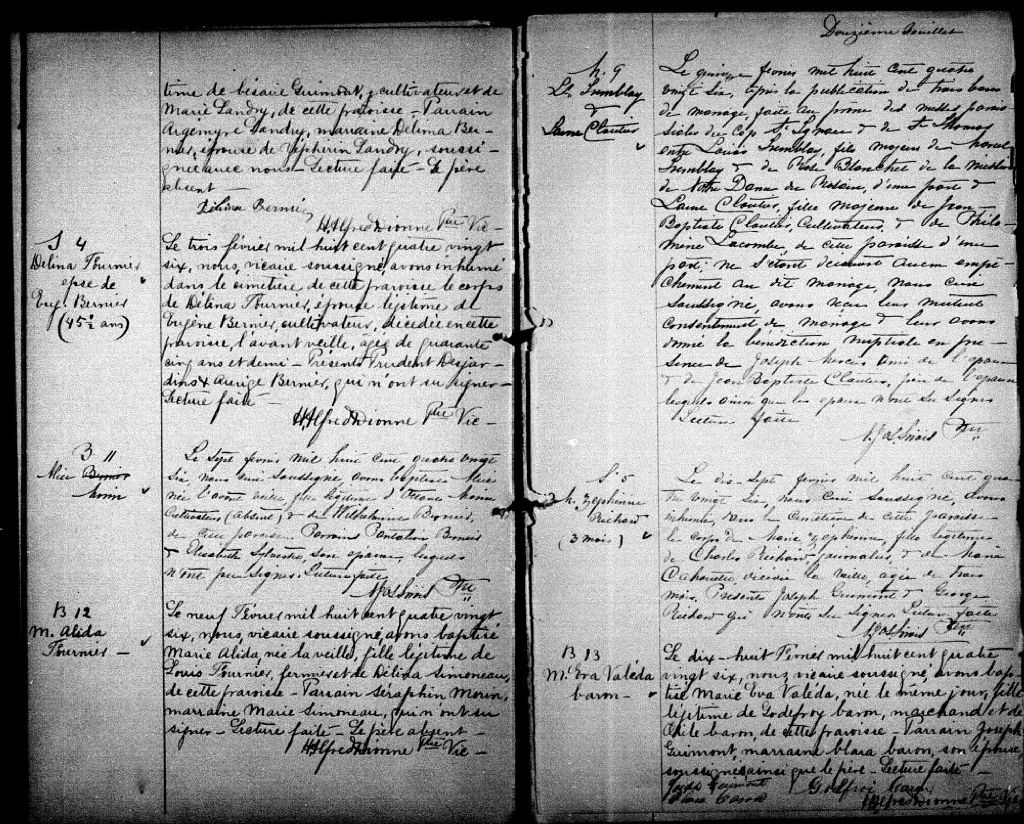 time de Césaire Guimont, cultivateur et de
Marie Landry, de cette paroisse - Parrain
Argemyre Landry, marraine Délima Ber-
nier, épouse de Zépherin Landry, soussi-
gnée avec nous - Lecture faite - Le père
absent -
Délima Bernier
H Alfred Dionne Ptre Vic -
S 4
Délina Fournier
epse de
Eug. Bernier
(45½ ans)
Le trois février mil huit cent quatre vingt
six, nous, vicaire soussigné, avons inhumé
dans le cimetière de cette paroisse le corps
de Délina Fournier, épouse légitime de
Eugène Bernier, cultivateur, décédée en cette
paroisse, l'avant veille, agée de quarante
cinq ans et demi - Présents Prudent Desjar-
dins & Bernier, qui n'ont su signer -
Lecture faite -
H Alfred Dionne Ptre Vic -
B 11
Alice Bernier
Morin
Le sept fevrier mil huit cent quatre vingt
Six, nous curé soussigné, avons baptisé Alice
née l'avant veille, fille légitime de Morin
Cultivateur (absent) & de Wilhelmine Bernier,
de cette paroisse. Parrain Pantaléon Bernier
& Elisabeth Sylvestre, son épouse, lesquels
n'ont pu signer. Lecture faite
Ptre
B 12
M. Alida
Fournier -
Le neuf Février mil huit cent quatre vingt
six, nous, vicaire soussigné, avons baptisé
Marie Alida, née la veille, fille légitime de
Louis Fournier, fermier et de Délida Simoneau,
de cette paroisse - Parrain Séraphin Morin,
marraine Marie Simoneau, qui n'ont su
signer - Lecture faite - Le père absent -
H Alfred Dionne Ptre Vic -
Douzième feuillet
M. 9
Ls Tremblay
&
Laure Cloutier
Le quinze fevrier mil huit cent quatre
vingt Six, après la publication de trois bans
de mariage, faite au prône des messes parois-
siales du Cap St Ignace & de St Thomas
entre Louis Tremblay, fils majeur de
Tremblay & de Rose Blanchet de la mission
de Notre Dame du Rosaire, d'une part &
Laure Cloutier, fille majeure de Jean
Baptiste Cloutier, Cultivateur, & de Philo-
mène Lacombe, de cette paroisse d'une
part; ne s'étant découvert aucun empê-
chement au dit mariage, nous curé
soussigné, avons reçu leur mutuel
consentement de mariage & leur avons
donné la bénédiction nuptiale en pré-
sence de Joseph Mercier ami de l'époux
& de Jean Baptiste Cloutier, père de l'épouse
lesquels ainsi que les époux n'ont su signer
Lecture faite
Ptre
S. 5
M. Zéphirine
Richard
(3 mois)
Le dix-sept fevrier mil huit cent qua-
tre vingt Six, nous curé soussigné, avons
inhumé, dans le cimetière de cette paroisse
le corps de Marie Zéphirine, fille légitime
de Charles Richard, journalier, & de Marie
décédée la veille, agée de trois
mois. Présents Joseph Guimont & George
Richard qui n'ont su signer. Lecture faite
Ptre
B 13
M. Eva Valéda
Caron -
Le dix-huit Février mil huit cent quatre
vingt six, nous vicaire soussigné, avons bap-
tisé Marie Eva Valéda, née le même jour, fille
légitime de Godefroy Caron, marchand et de
Odile Caron, de cette paroisse - Parrain Joseph
Guimont, marraine Clara Caron, son épouse,
soussignés ainsi que le père - Lecture faite -
Guimont Godfroi Caron
Clara Caron H Alfred Dionne Ptre Vic